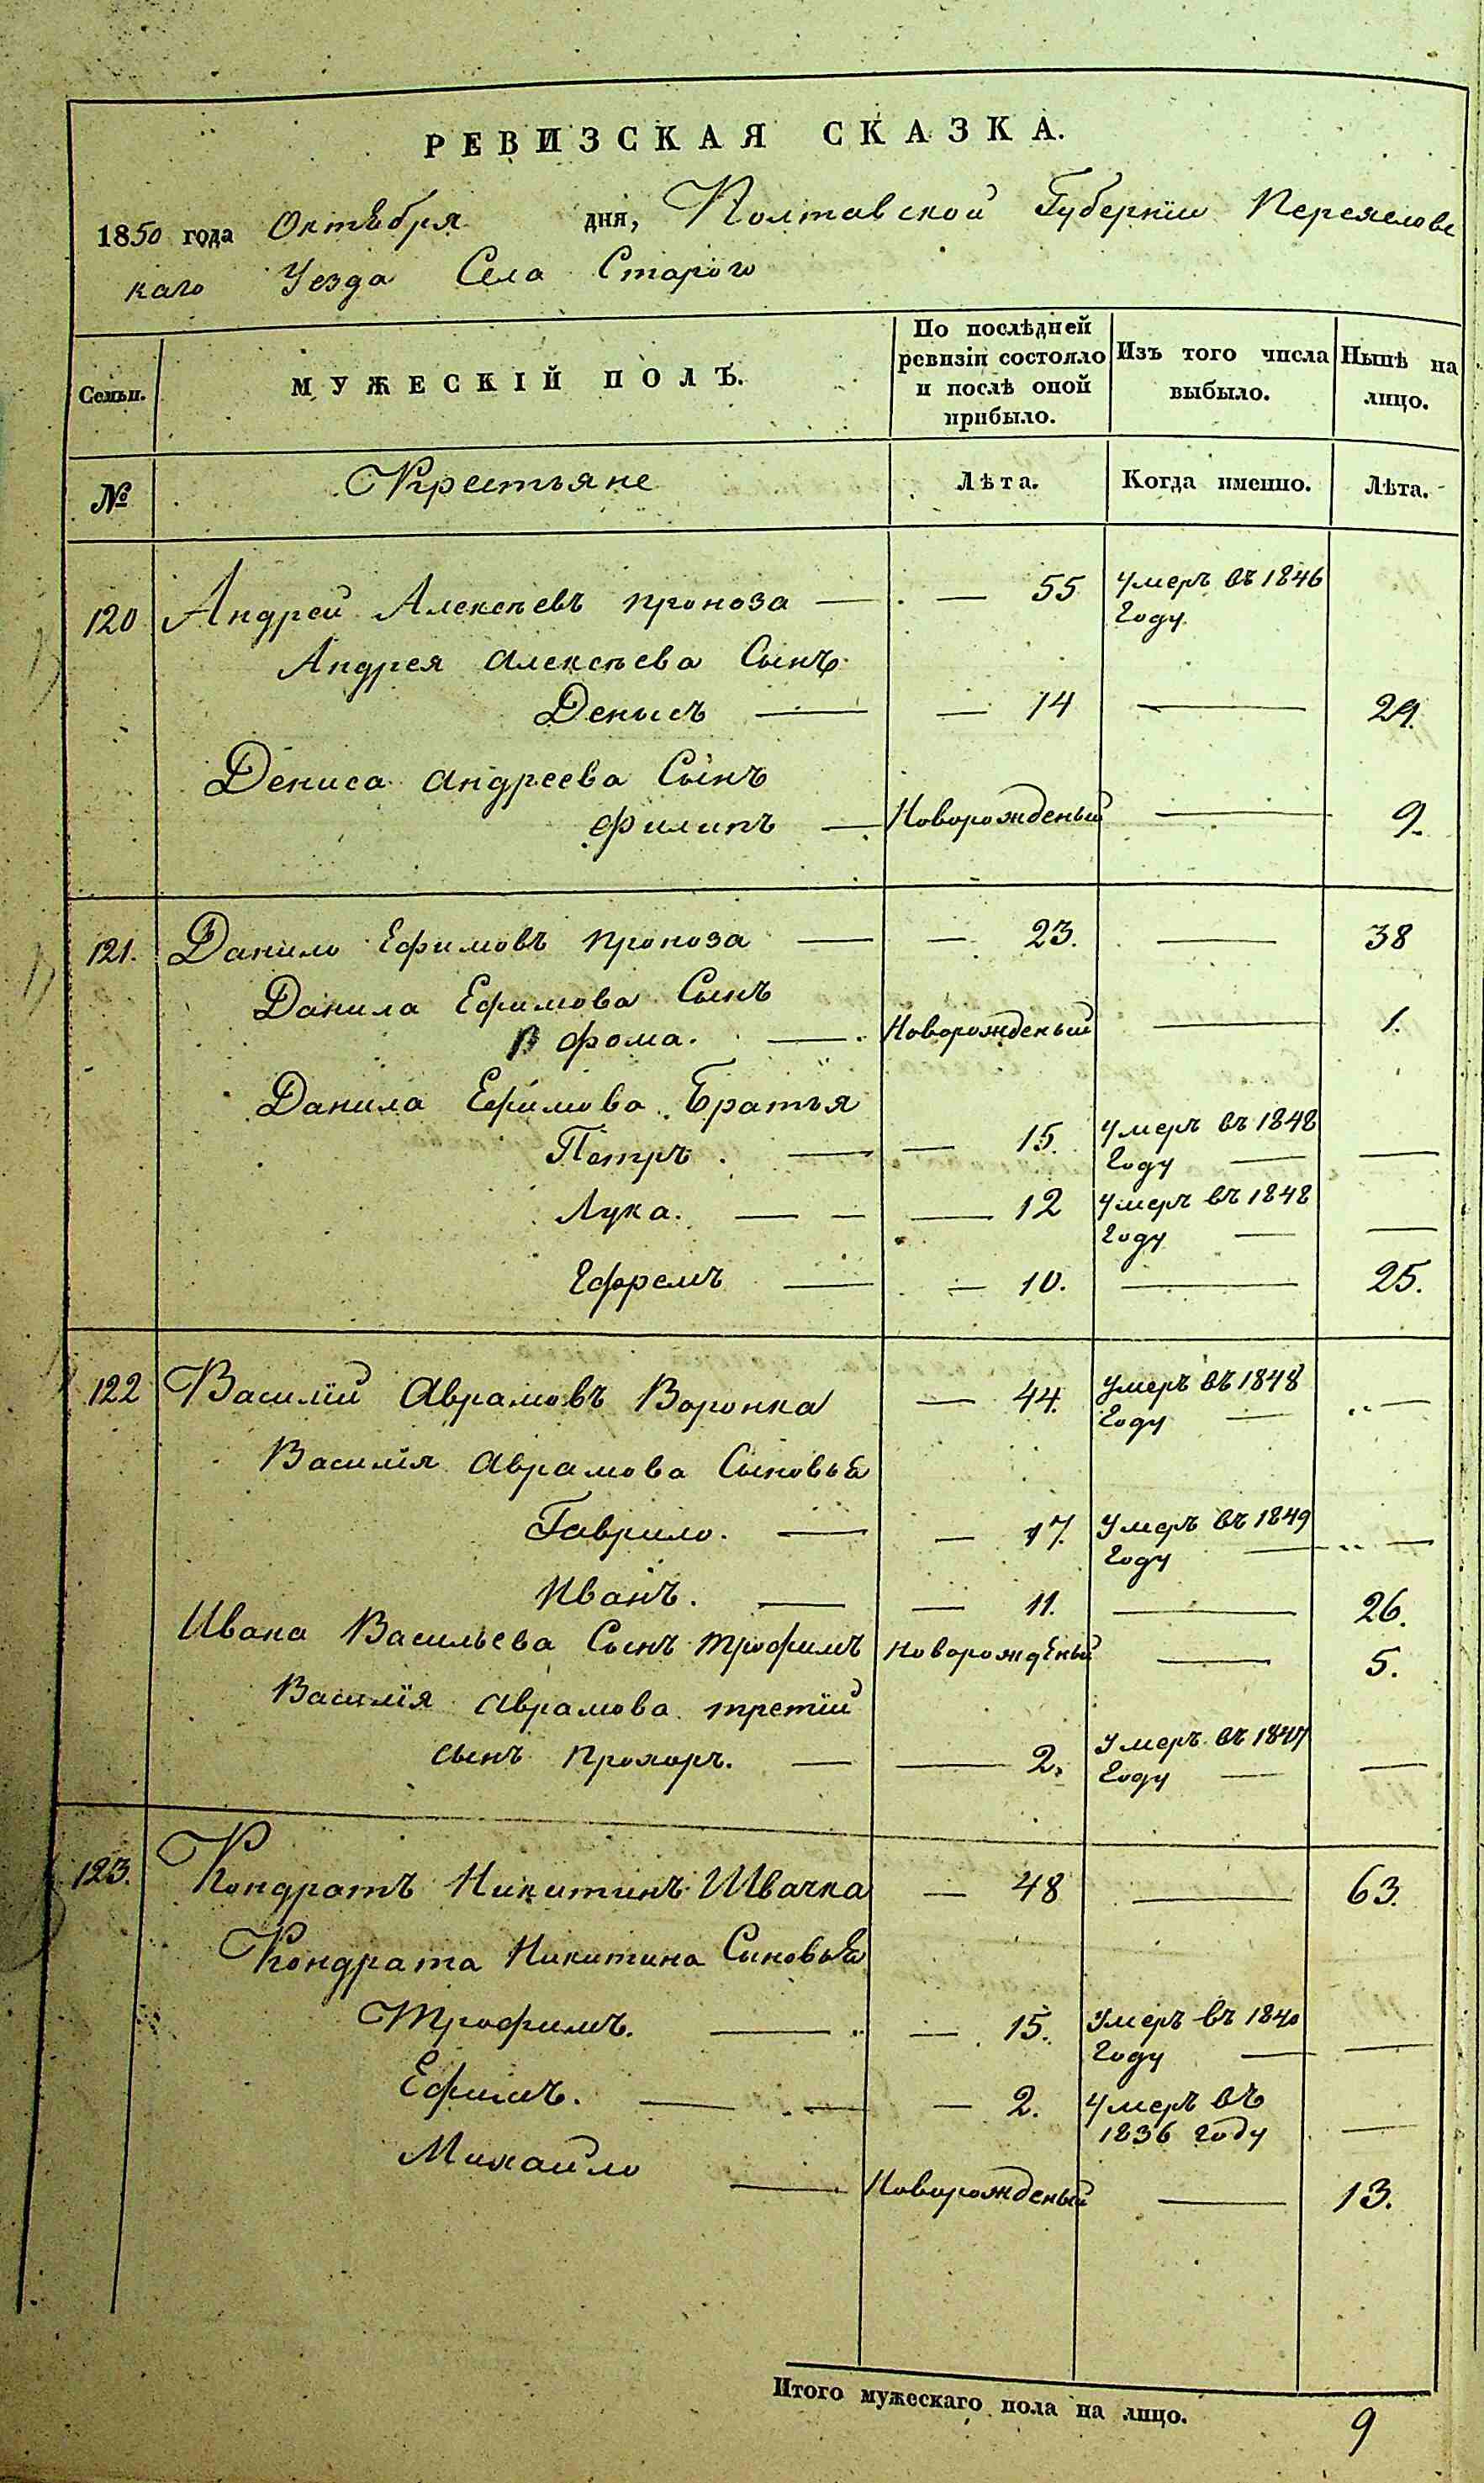 РЕВИЗСКАЯ СКАЗКА.
1850 года Октября дня, Полтавской Губернїи Переяславс
каго Уезда Села Старого
Семьи. МУЖЕСКІЙ ПОЛЪ. По послѣдней ревизіи состояло и послѣ оной прибыло. Изъ того числа выбыло. Нынѣ на лицо.
№ Крестьяне Лѣта. Когда именно. Лѣта.
120 Андрей Алексѣевъ Проноза — — 55 умеръ въ 1846
году
Андрея Алексѣева Сынъ
Денысъ — — 14 — 29.
Дениса Андреева Сынъ
Филипъ — Новорожденый — 9.
121. Данило Ефимовъ Проноза — — 23. — 38
Данила Ефимова Сынъ
Фома. — Новорожденый — 1.
Данила Ефимова Братья
Петръ. — — 15. умеръ въ 1848
году — —
Лука. — — — 12 умеръ въ 1848
году — —
Ефремъ — — 10. — 25.
122 Василїй Аврамовъ Воронка — 44. умеръ въ 1848
году — —
Василїя Аврамова Сыновья
Гаврило. — — 17. умеръ въ 1849
году — —
Иванъ. — — 11. — 26.
Ивана Васильева Сынъ Трофимъ Новорожденый — 5.
Василїя Аврамова третїй
сынъ Прохоръ. — — 2. умеръ въ 1847
году — —
123. Кондратъ Никитинъ Швачка — 48 — 63.
Кондрата Никитина Сыновья
Трофимъ. — — 15. умеръ въ 1840
году — —
Ефимъ. — — — 2. умеръ въ
1836 году —
Михайло — Новорожденый — 13.
Итого мужескаго пола на лицо. 9